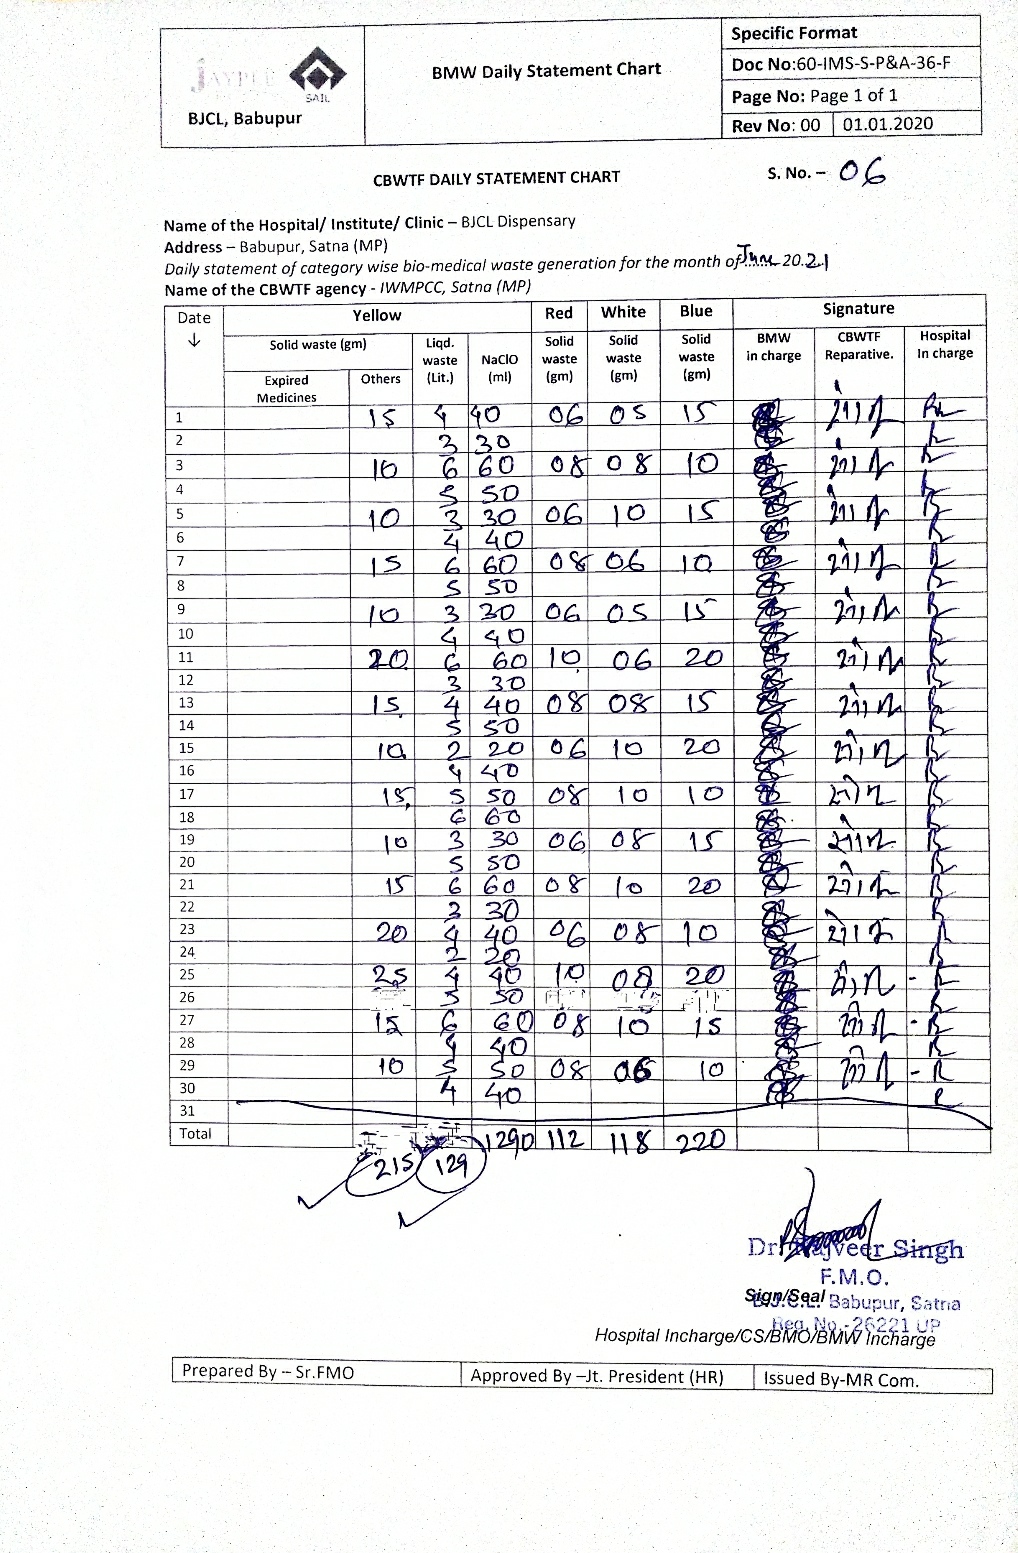 JAYPEE
SAIL
BJCL, Babupur
BMW Daily Statement Chart
Specific Format
Doc No:60-IMS-S-P&A-36-F
Page No: Page 1 of 1
Rev No: 00 01.01.2020
CBWTF DAILY STATEMENT CHART
S. No. – 06
Name of the Hospital/ Institute/ Clinic – BJCL Dispensary
Address – Babupur, Satna (MP)
Daily statement of category wise bio-medical waste generation for the month of June 2021
Name of the CBWTF agency - IWMPCC, Satna (MP)
Date ↓ Yellow Red White Blue Signature
Solid waste (gm) Liqd. waste (Lit.) NaClO (ml) Solid waste (gm) Solid waste (gm) Solid waste (gm) BMW in charge CBWTF Reparative. Hospital In charge
Expired Medicines Others
1 15 4 40 06 05 15
2 3 30
3 10 6 60 08 08 10
4 5 50
5 10 3 30 06 10 15
6 4 40
7 15 6 60 08 06 10
8 5 50
9 10 3 30 06 05 15
10 4 40
11 20 6 60 10 06 20
12 3 30
13 15 4 40 08 08 15
14 5 50
15 10 2 20 06 10 20
16 4 40
17 15 5 50 08 10 10
18 6 60
19 10 3 30 06 08 15
20 5 50
21 15 6 60 08 10 20
22 3 30
23 20 4 40 06 08 10
24 2 20
25 25 4 40 10 08 20
26 5 50
27 15 6 60 08 10 15
28 4 40
29 10 5 50 08 06 10
30 4 40
31
Total 1290 112 118 220
215 129
Dr. Rajveer Singh
F.M.O.
Sign/Seal
B.J.C.L. Babupur, Satna
Reg. No.-26221 UP
Hospital Incharge/CS/BMO/BMW Incharge
Prepared By – Sr.FMO Approved By –Jt. President (HR) Issued By-MR Com.